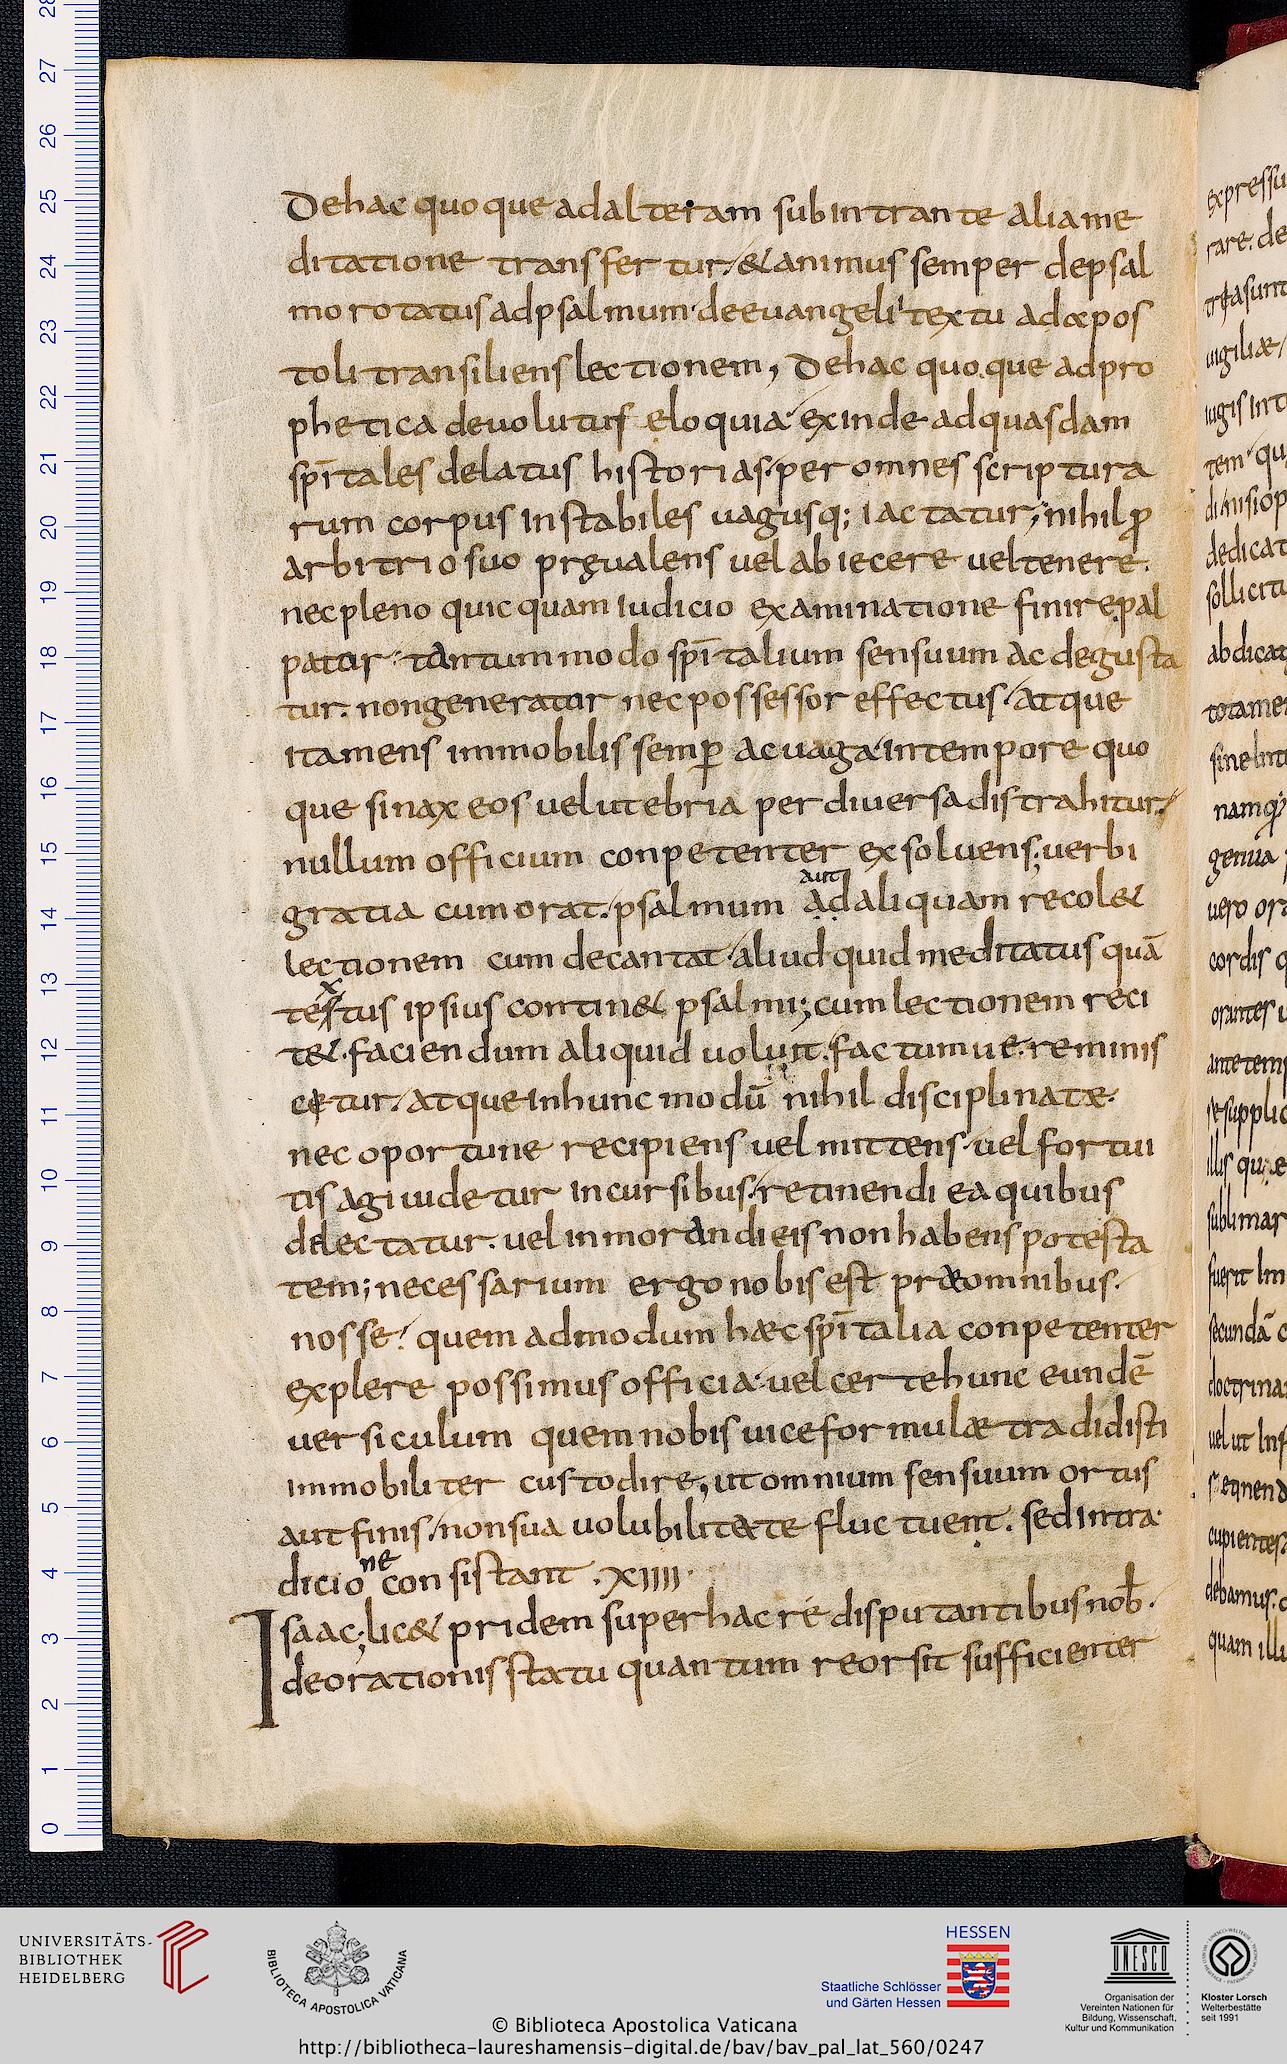 Dehac quoque adalteram subintrante aliame
ditatione transfertur. & animus semper depsal
mo rotatus adpsalmum. deevangelii textu adapos
toli transiliens lectionem, Dehac quoque adpro
phetica devolutus eloquia exinde adquasdam
spītales delatus historias. per omnes scriptura
rum corpus instabiles uagusq; iactatur; nihil ꝓ
arbitrio suo pręualens uel abiecere ueltenere.
necpleno quicquam iudicio examinatione finire. pal
patur. tantummodo spītalium sensuum ac degusta
tur. non generatur nec possessor effectus. atque
itamens immobilis semꝑ acuaga intempore quo
que sinaxeos uelut ebria per diuersa distrahitur.
nullum officium conpetenter exsoluens; uerbi
aut
gratia cum orat. psalmum ad aliquam recol&
lectionem cum decantat. aliud quid meditatus quā
x
testus ipsius contin& psalmi; cum lectionem reci
t&. faciendum aliquid uoluit. factumue. reminis
cetur. atque inhunc modū nihil disciplinatæ.
nec oportune recipiens uel mittens. uel fortui
tis agi uidetur incursibus. retinendi ea quibus
delectatur. uel inmorandi eis non habens potesta
tem; necessarium ergo nobis est præ omnibus.
nosse. quem admodum hæc spītalia conpetenter
explere possimus officia. uel certe hunc eundē
uersiculum quem nobis uice formulæ tradidisti
immobiliter custodire, ut omnium sensuum ortus
aut finis. non sua uolubilitate fluctuent. sed intra
ne
dicio consistant . XIIII .
Isaac; lic& pridem super hac re disputantibus nob̄.
de orationis statu quantum reor sit sufficienter
expressu
rare. de
uigiliæ
dedicat
sollicitu
abdicat
totamen
namq;
genua
uero or
cordis q
secundā c
doctrina
uel ut ins
cupientes
debamus. q
quam illu
28
27
26
25
24
23
22
21
20
19
18
17
16
15
14
13
12
11
10
9
8
7
6
5
4
3
2
1
0
UNIVERSITÄTS-
BIBLIOTHEK
HEIDELBERG
BIBLIOTECA APOSTOLICA VATICANA
HESSEN
Staatliche Schlösser
und Gärten Hessen
UNESCO
Organisation der
Vereinten Nationen für
Bildung, Wissenschaft,
Kultur und Kommunikation
Kloster Lorsch
Welterbestätte
seit 1991
© Biblioteca Apostolica Vaticana
http://bibliotheca-laureshamensis-digital.de/bav/bav_pal_lat_560/0247